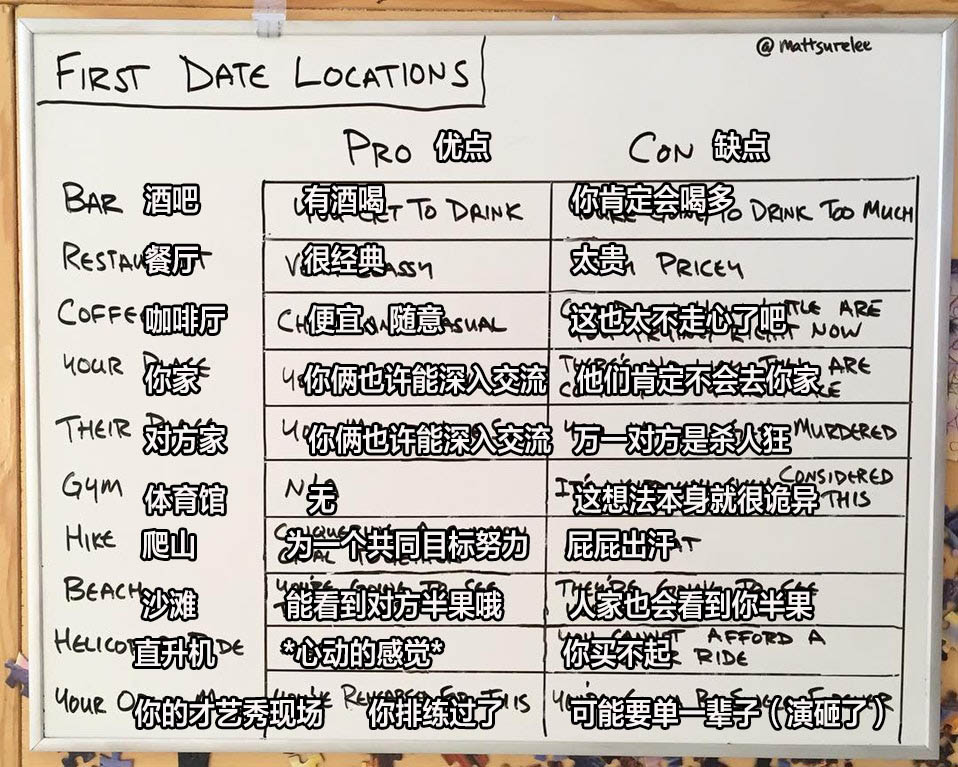 @mattsurelee
FIRST DATE LOCATIONS
PRO 优点 CON 缺点
BAR 酒吧 有酒喝 GET TO DRINK 你肯定会喝多 TO DRINK TOO MUCH
餐厅 很经典 太贵 PRICEY
咖啡厅 便宜、随意 这也太不走心了吧 ARE RIGHT NOW
YOUR 你家 你俩也许能深入交流 他们肯定不会去你家 ARE
THEIR 对方家 你俩也许能深入交流 万一对方是杀人狂 MURDERED
GYM 体育馆 无 这想法本身就很诡异 CONSIDERED THIS
HIKE 爬山 为一个共同目标努力 屁屁出汗
BEACH 沙滩 能看到对方半果哦 人家也会看到你半果
直升机 *心动的感觉* 你买不起 AFFORD A RIDE
YOUR 你的才艺秀现场 你排练过了 THIS 可能要单一辈子（演砸了）